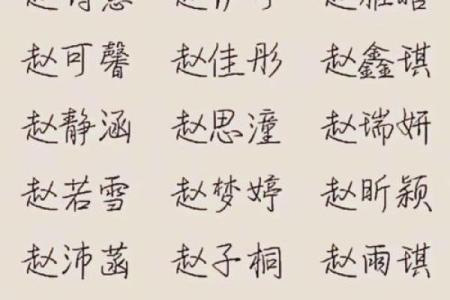 赵可馨 赵佳彤 赵鑫琪
赵静涵 赵思潼 赵瑞妍
赵若雪 赵梦婷 赵昕颖
赵沛菡 赵子桐 赵雨琪